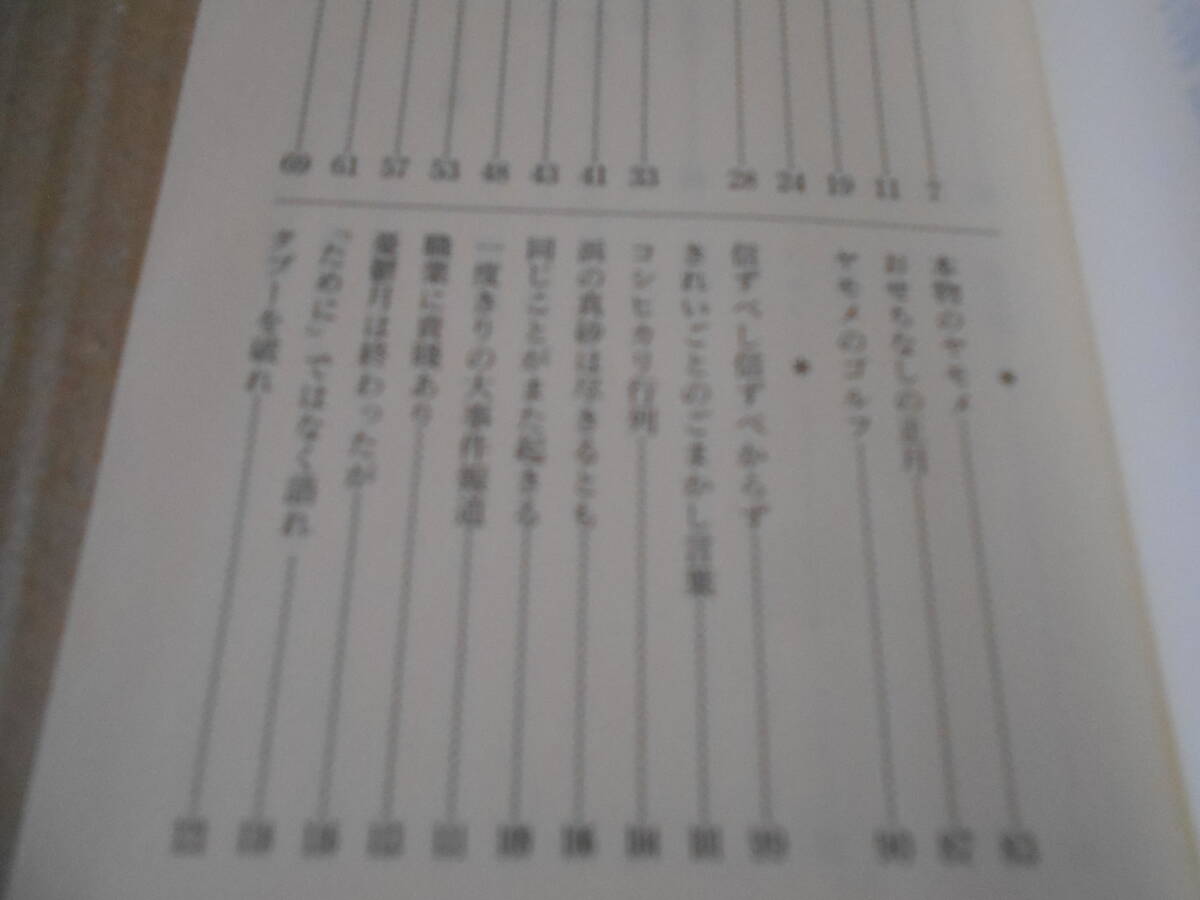 7
11
19
24
28
33
41
43
48
53
57
61
69
*
本物のヤモメ
おせちなしの正月
ヤモメのゴルフ
*
信ずべし信ずべからず
きれいごとのごまかし言葉
コシヒカリ行列
浜の真砂は尽きるとも
同じことがまた起きる
一度きりの大事件報道
職業に貴賤あり
憂鬱月は終わったが
「ために」ではなく語れ
タブーを破れ